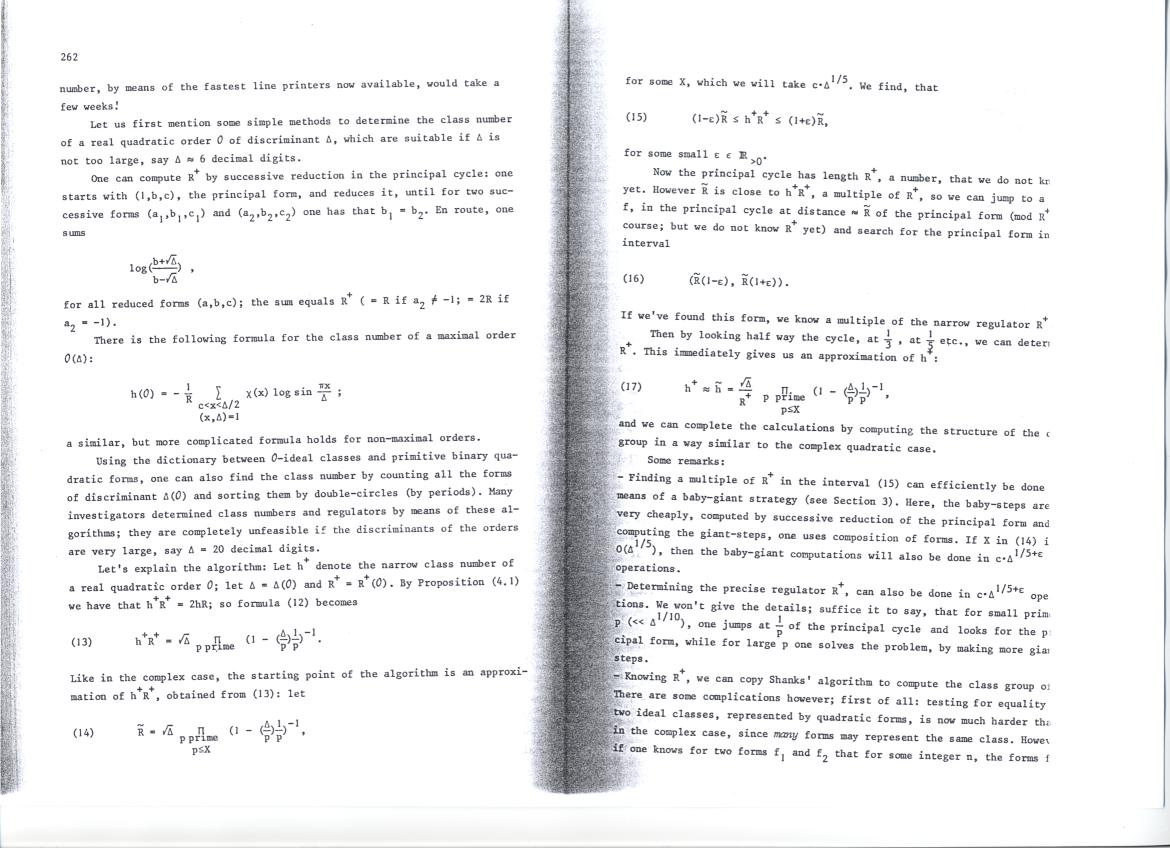 262
number, by means of the fastest line printers now available, would take a
few weeks!
Let us first mention some simple methods to determine the class number
of a real quadratic order O of discriminant Δ, which are suitable if Δ is
not too large, say Δ ≈ 6 decimal digits.
One can compute R⁺ by successive reduction in the principal cycle: one
starts with (1,b,c), the principal form, and reduces it, until for two suc-
cessive forms (a₁,b₁,c₁) and (a₂,b₂,c₂) one has that b₁ = b₂. En route, one
sums
log(b+√Δ / b-√Δ) ,
for all reduced forms (a,b,c); the sum equals R⁺ ( = R if a₂ ≠ -1; = 2R if
a₂ = -1).
There is the following formula for the class number of a maximal order
O(Δ):
h(O) = - 1/R Σ χ(x) log sin πx/Δ ;
c<x<Δ/2
(x,Δ)=1
a similar, but more complicated formula holds for non-maximal orders.
Using the dictionary between O-ideal classes and primitive binary qua-
dratic forms, one can also find the class number by counting all the forms
of discriminant Δ(O) and sorting them by double-circles (by periods). Many
investigators determined class numbers and regulators by means of these al-
gorithms; they are completely unfeasible if the discriminants of the orders
are very large, say Δ = 20 decimal digits.
Let's explain the algorithm: Let h⁺ denote the narrow class number of
a real quadratic order O; let Δ = Δ(O) and R⁺ = R⁺(O). By Proposition (4.1)
we have that h⁺R⁺ = 2hR; so formula (12) becomes
(13) h⁺R⁺ = √Δ Π p prime (1 - (Δ/p)1/p)⁻¹.
Like in the complex case, the starting point of the algorithm is an approxi-
mation of h⁺R⁺, obtained from (13): let
(14) R̃ = √Δ Π p prime (1 - (Δ/p)1/p)⁻¹,
p≤X
for some X, which we will take c·Δ^1/5. We find, that
(15) (1-ε)R̃ ≤ h⁺R⁺ ≤ (1+ε)R̃,
for some small ε ε ℝ>0.
Now the principal cycle has length R⁺, a number, that we do not kn
yet. However R̃ is close to h⁺R⁺, a multiple of R⁺, so we can jump to a
f, in the principal cycle at distance ≈ R̃ of the principal form (mod R⁺
course; but we do not know R⁺ yet) and search for the principal form in
interval
(16) (R̃(1-ε), R̃(1+ε)).
If we've found this form, we know a multiple of the narrow regulator R⁺
Then by looking half way the cycle, at 1/3 , at 1/5 etc., we can deter
R⁺. This immediately gives us an approximation of h⁺:
(17) h⁺ ≈ h̃ = √Δ/R⁺ Π p prime (1 - (Δ/p)1/p)⁻¹,
p≤X
and we can complete the calculations by computing the structure of the c
group in a way similar to the complex quadratic case.
Some remarks:
- Finding a multiple of R⁺ in the interval (15) can efficiently be done
means of a baby-giant strategy (see Section 3). Here, the baby-steps are
very cheaply, computed by successive reduction of the principal form and
computing the giant-steps, one uses composition of forms. If X in (14) i
O(Δ^1/5), then the baby-giant computations will also be done in c·Δ^1/5+ε
operations.
- Determining the precise regulator R⁺, can also be done in c·Δ^1/5+ε ope
tions. We won't give the details; suffice it to say, that for small prim
p (<< Δ^1/10), one jumps at 1/p of the principal cycle and looks for the p
cipal form, while for large p one solves the problem, by making more gia
steps.
- Knowing R⁺, we can copy Shanks' algorithm to compute the class group o
There are some complications however; first of all: testing for equality
two ideal classes, represented by quadratic forms, is now much harder tha
in the complex case, since many forms may represent the same class. Howev
if one knows for two forms f₁ and f₂ that for some integer n, the forms f